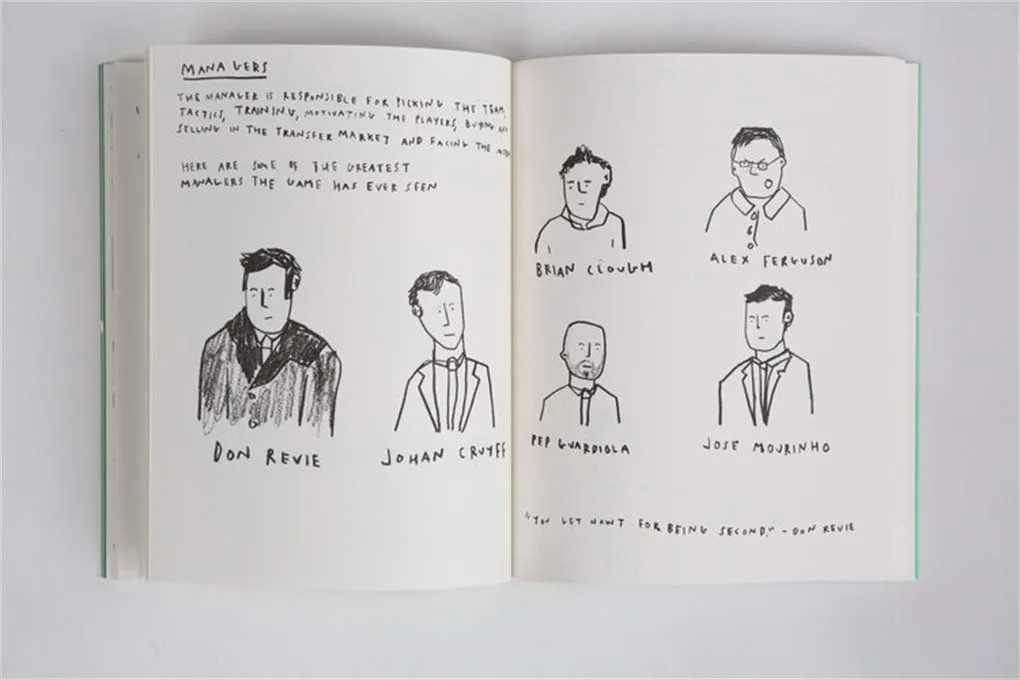 MANAGERS
THE MANAGER IS RESPONSIBLE FOR PICKING THE TEAM,
TACTICS, TRAINING, MOTIVATING THE PLAYERS, BUYING
SELLING IN THE TRANSFER MARKET AND FACING THE
HERE ARE SOME OF THE GREATEST
MANAGERS THE GAME HAS EVER SEEN
DON REVIE
JOHAN CRUYFF
BRIAN CLOUGH
ALEX FERGUSON
PEP GUARDIOLA
JOSE MOURINHO
"YOU GET NOWT FOR BEING SECOND." - DON REVIE